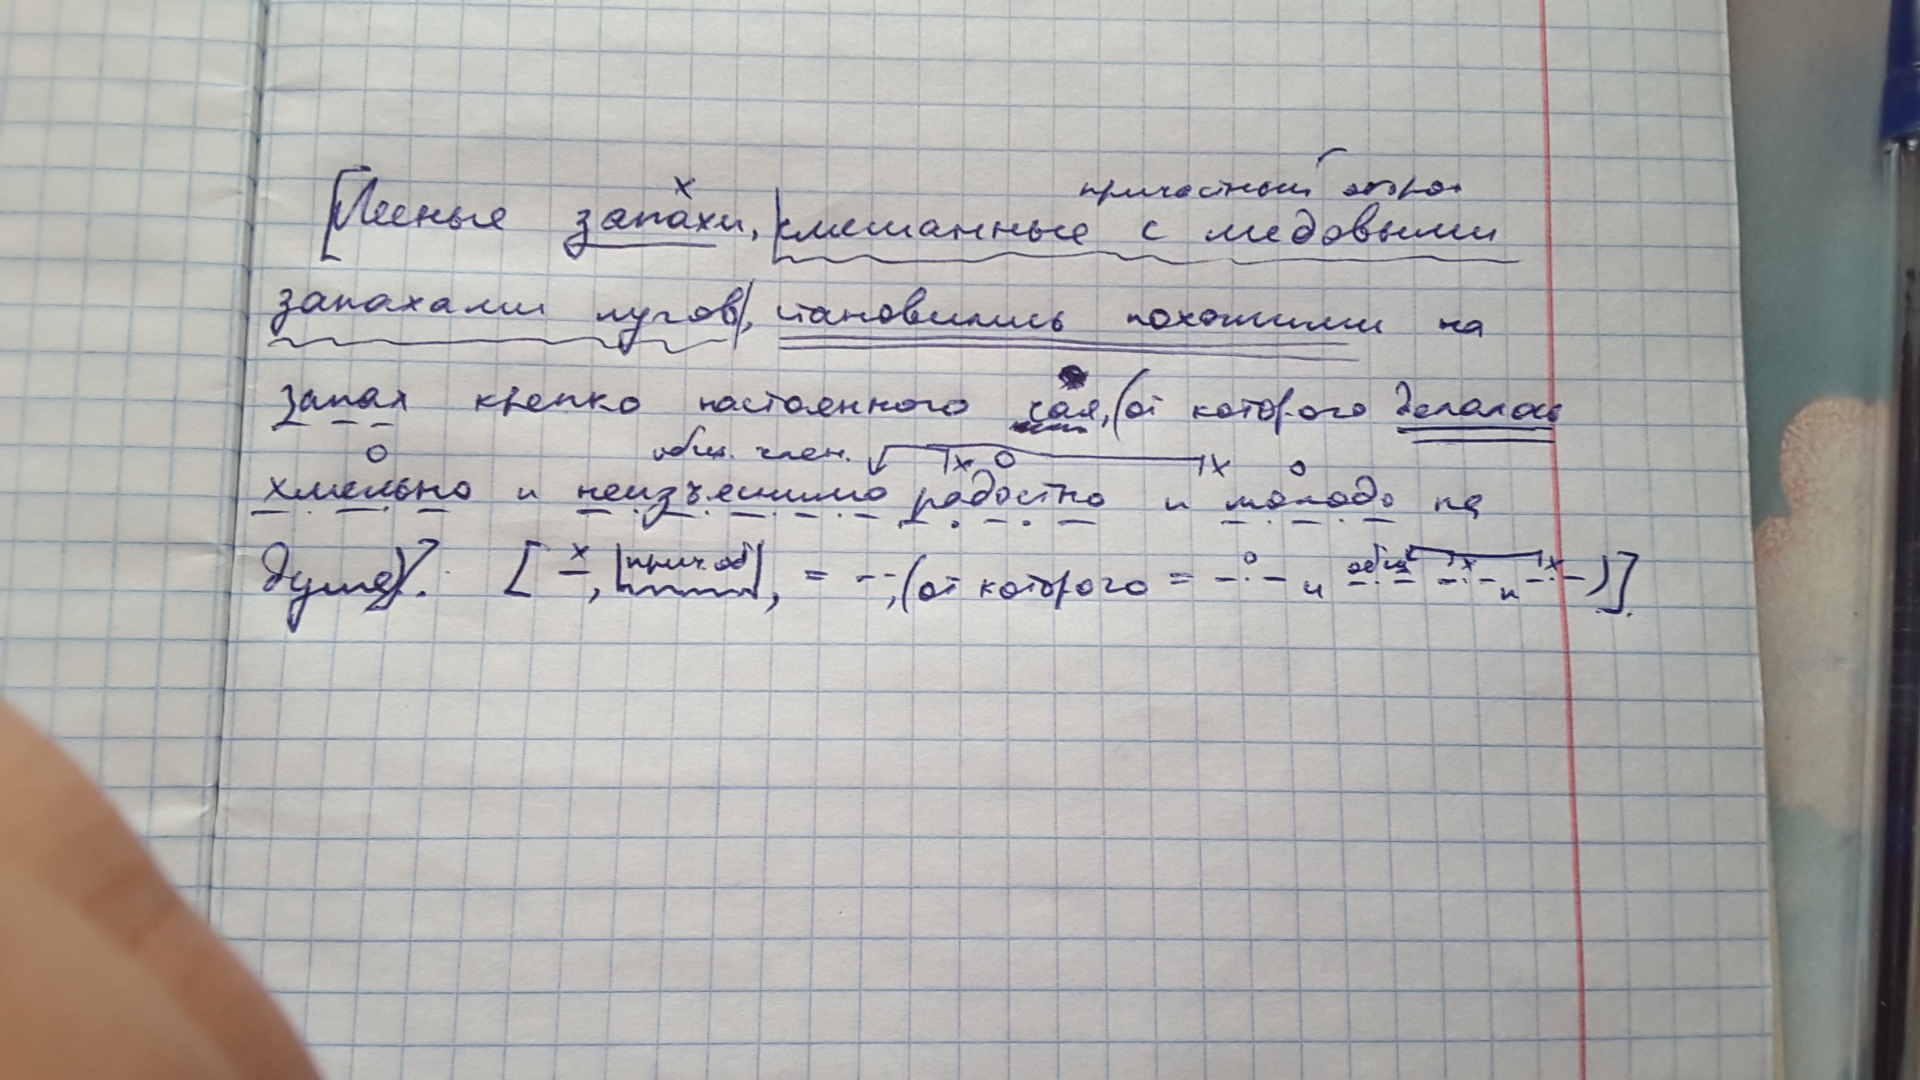 причастный обро
[Лесные запахи, |смешанные с медовыми
запахами лугов|, становились похожими на
запах крепко настоянного чая, (от которого делалось
общ. член.
хмельно и неизъяснимо радостно и молодо на
душе)]. [ х, |прич об|, = --, (от которого = -.- и общ -.- и -.-)].